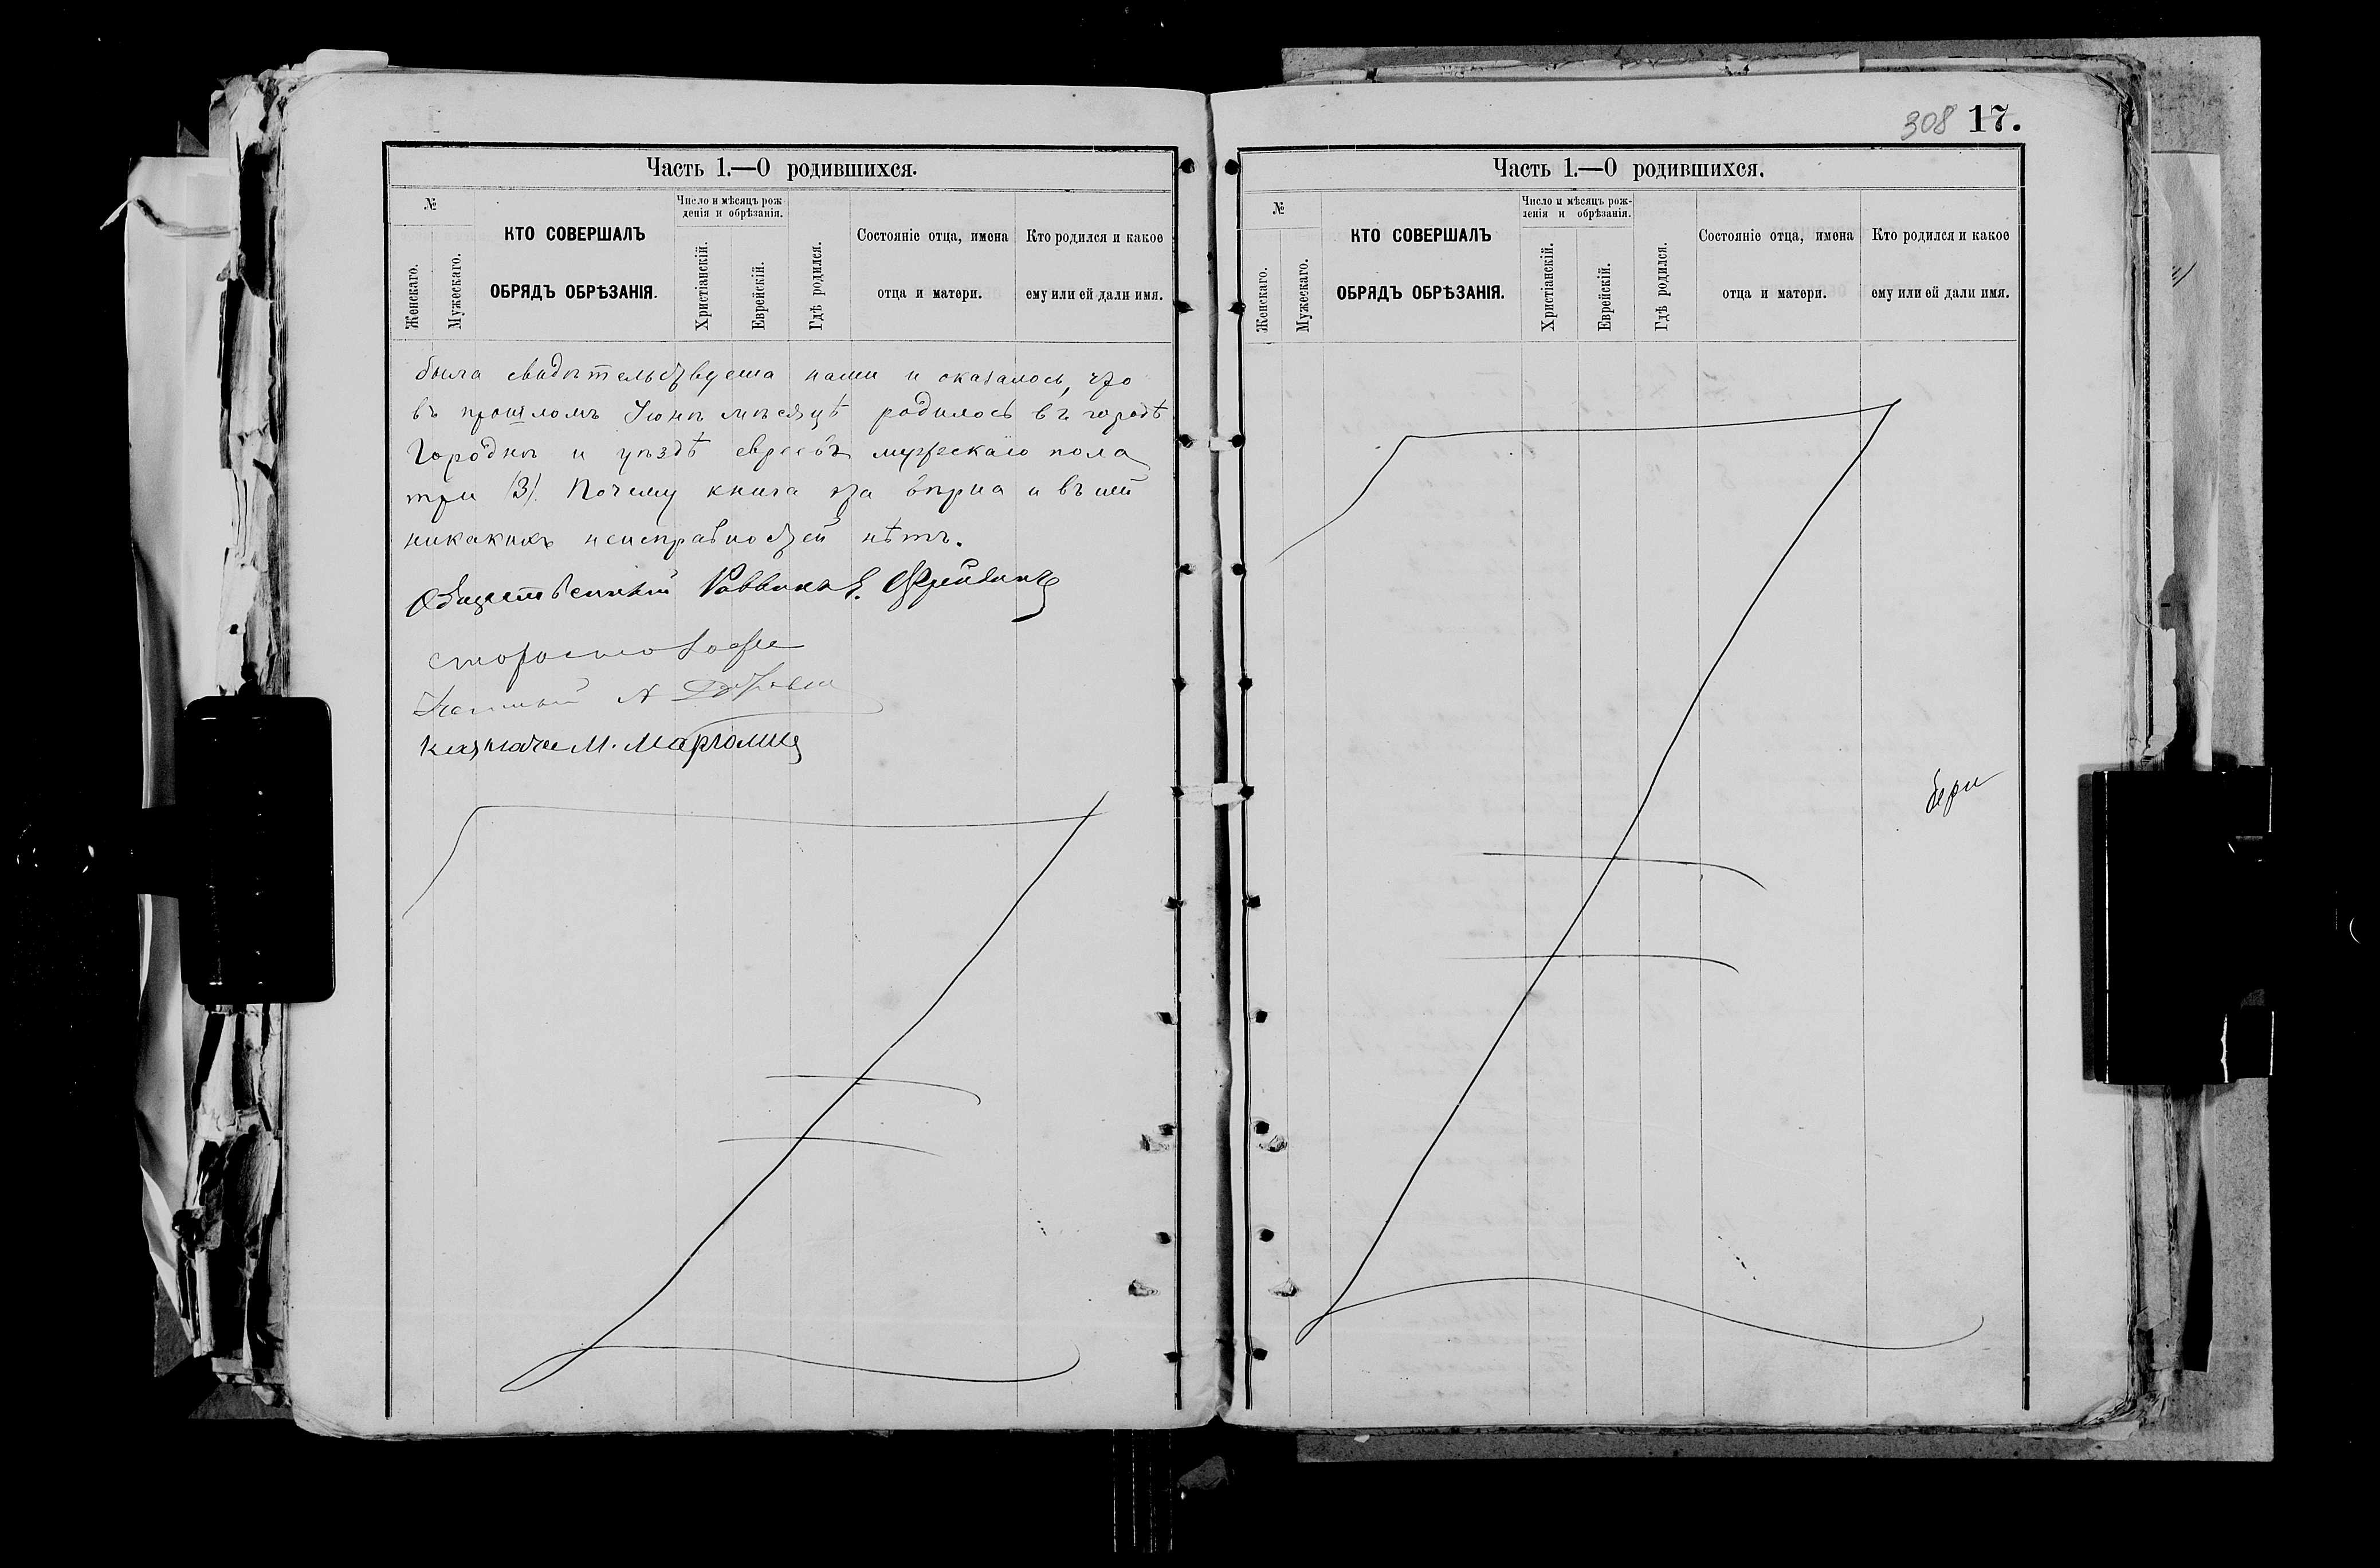 Часть 1.—О родившихся.
№
Женскаго.
Мужескаго.
КТО СОВЕРШАЛЪ
ОБРЯДЪ ОБРѢЗАНІЯ.
Число и мѣсяцъ рож
денія и обрѣзанія.
Христіанскій.
Еврейскій.
Гдѣ родился.
Состояніе отца, имена
отца и матери.
Кто родился и какое
ему или ей дали имя.
была свидѣтельствуема нами и оказалось, что
въ прошломъ Іюнѣ мѣсяцѣ родилось въ городѣ
Городнѣ и уѣздѣ евреевъ мужескаго пола
три (3). Почему книга эта вѣрна и въ ней
никакихъ неисправностей нѣтъ.
Общественный Раввинъ
Староста
Ученый
Казначей М. Марголинъ
308 17.
Часть 1.—О родившихся.
№
Женскаго.
Мужескаго.
КТО СОВЕРШАЛЪ
ОБРЯДЪ ОБРѢЗАНІЯ.
Число и мѣсяцъ рож-
денія и обрѣзанія.
Христіанскій.
Еврейскій.
Гдѣ родился.
Состояніе отца, имена
отца и матери.
Кто родился и какое
ему или ей дали имя.